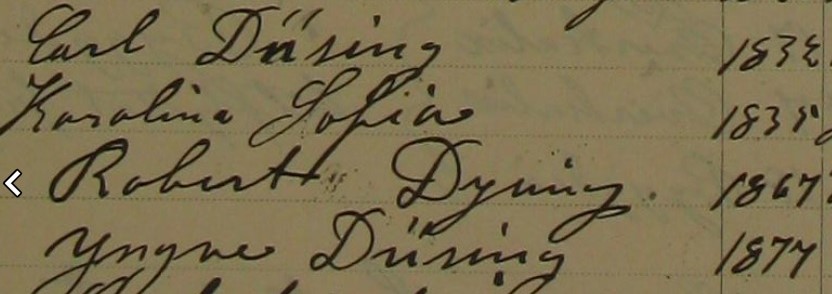 Carl Düsing 1832
Karolina Sofia 1835
Robert Dyning. 1867
Yngve Düsing 1877